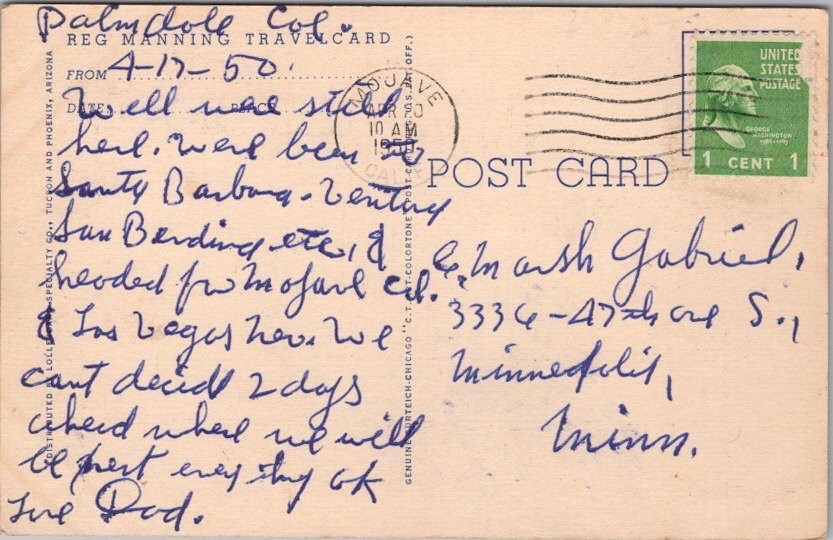 Palmdale Cal.
REG MANNING TRAVELCARD
FROM 4-17-50
DATE PLACE
Well were still
here. Were been to
Santa Barbara. Ventura
San Berdino etc, &
headed for Mojave Cal.
& Las Vegas Nev. We
cant decide 2 days
ahead where we will
be next every thing ok
Love Dad.
DISTRIBUTED BY LOLLESGARD SPECIALTY CO., TUCSON AND PHOENIX, ARIZONA
GENUINE CURTEICH-CHICAGO "C.T. ART-COLORTONE" POST CARD (REG. U.S. PAT. OFF.)
MOJAVE
APR 20
10 AM
1950
CALIF.
UNITED
STATES
POSTAGE
GEORGE
WASHINGTON
1789-1797
1 CENT 1
POST CARD
Marsh Gabriel,
3336-47th ave S.,
Minneapolis,
Minn.